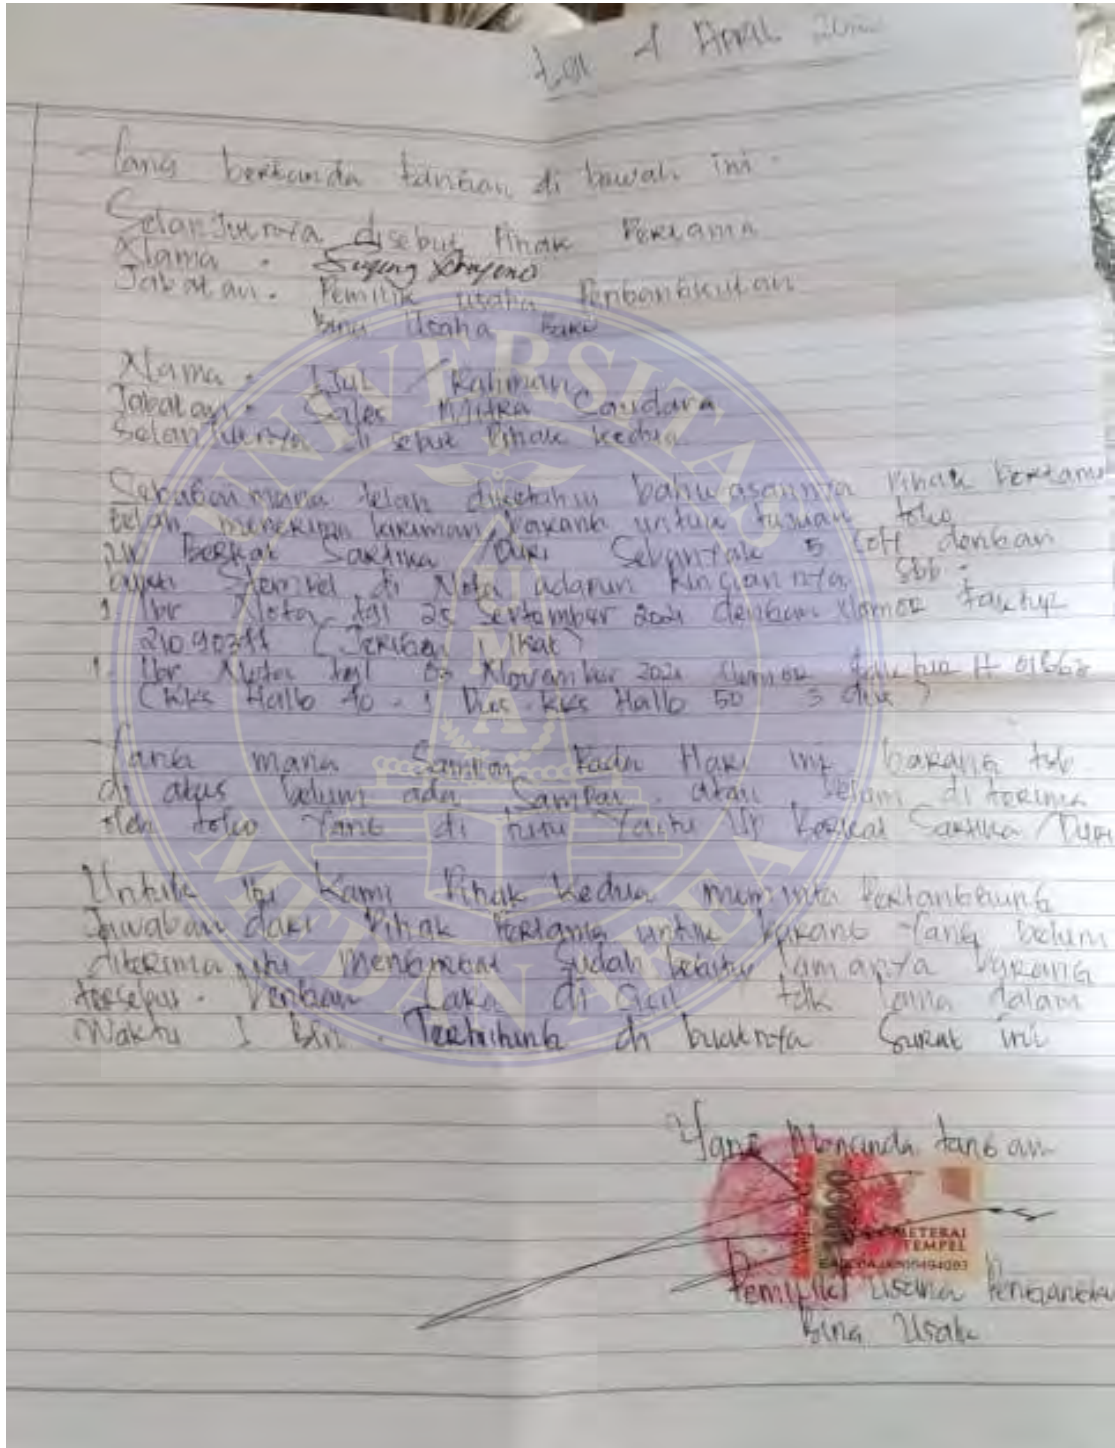 tgl 4 APRIL
Yang bertanda tangan di bawah ini.
Selanjutnya disebut Pihak Pertama
Nama : Sugeng
Jabatan : Pemilik usaha
Bina Usaha Baru
Nama : IJul / Rahman
Jabatan : Sales Mitra Saudara
Selanjutnya di sebut Pihak kedua
Sebagaimana telah diketahui bahwasannya Pihak Pertama
telah menerima kiriman barang untuk tujuan toko
UP Berkat Sartika / Duri Sebanyak 5 Coll dengan
Stempel di Nota adapun Rinciannya sbb :
1 lbr Nota tgl 25 September 2021 dengan Nomor faktur
(Jerigen
1 lbr Nota tgl November 2021 Nomor faktur H
(KKS Hallo 40 - 1 Dus - KKS Hallo 50 3 dus)
Yang mana Sampai Pada Hari ini barang tsb
di atas belum ada Sampai atau belum di terima
oleh toko Yang di tuju Yaitu UP Berkat Sartika / Duri
Untuk itu Kami Pihak Kedua meminta Pertanggung
Jawaban dari Pihak Pertama untuk barang Yang belum
diterima sudah begitu lamanya barang
tersebut. Dengan Cara di Cicil tdk lama dalam
Waktu 1 Bln. Terhitung di buatnya Surat ini
Yang Menanda tangan
METERAI
TEMPEL
Pemilik Usaha
Bina Usaha
UNIVERSITAS
UMA
MEDAN AREA